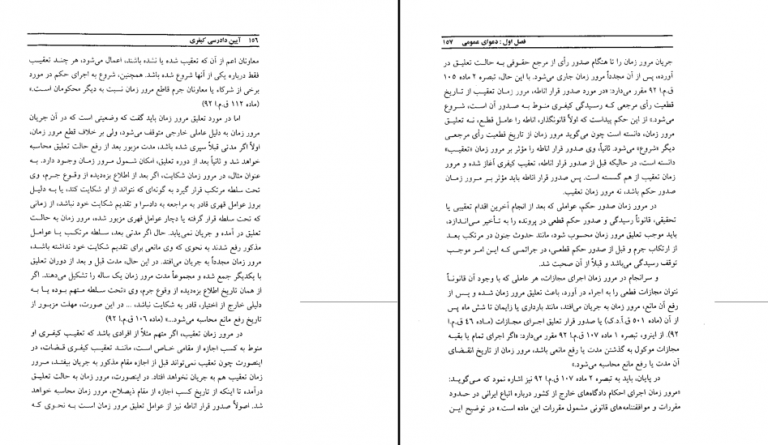 ۱۵۶ آیین دادرسی کیفری
معاونان اعم از آن که تعقیب شده یا نشده باشند، اعمال می‌شود، هر چند تعقیب
فقط درباره یکی از آنها شروع شده باشد. همچنین، شروع به اجرای حکم در مورد
برخی از شرکاء یا معاونان جرم قاطع مرور زمان نسبت به دیگر محکومان است.»
(ماده ۱۱۲ ق.م.ا ۹۲)
اما در مورد تعلیق مرور زمان باید گفت که وضعیتی است که در آن جریان
مرور زمان به دلیل عاملی خارجی متوقف می‌شود، ولی بر خلاف قطع مرور زمان،
اولاً اگر مدتی قبلاً سپری شده باشد، مدت مزبور بعد از رفع حالت تعلیق محاسبه
خواهد شد و ثانیاً بعد از دوره تعلیق، امکان شمول مرور زمان وجود دارد. به
عنوان مثال، در مرور زمان شکایت، اگر بعد از اطلاع بزه‌دیده از وقوع جرم، وی
تحت سلطه مرتکب قرار گیرد به گونه‌ای که نتواند از او شکایت کند، یا به دلیل
بروز عوامل قهری قادر به مراجعه به دادسرا و تقدیم شکایت خود نباشد، از زمانی
که تحت سلطه قرار گرفته یا دچار عوامل قهری مزبور شده، مرور زمان به حالت
تعلیق در آمده و جریان نمی‌یابد. حال اگر مدتی بعد، سلطه مرتکب یا عوامل
مذکور رفع شدند به نحوی که وی مانعی برای تقدیم شکایت خود نداشته باشد،
مرور زمان مجدداً به جریان می‌افتد. در این حال، مدت قبل و بعد از دوران تعلیق
با یکدیگر جمع شده و مجموعاً مدت مرور زمان یک ساله را تشکیل می‌دهند. اگر
از همان تاریخ اطلاع بزه‌دیده از وقوع جرم، وی «تحت سلطه متهم بوده یا به
دلیلی خارج از اختیار، قادر به شکایت نباشد، ... در این صورت، مهلت مزبور از
تاریخ رفع مانع محاسبه می‌شود...» (ماده ۱۰۶ ق.م.ا ۹۲)
در مرور زمان تعقیب، اگر متهم مثلاً از افرادی باشد که تعقیب کیفری او
منوط به کسب اجازه از مقامی خاص است، مانند تعقیب کیفری قضات، در
اینصورت چون تعقیب نمی‌تواند قبل از اجازه مقام مذکور به جریان بیفتد، مرور
زمان تعقیب هم به جریان نخواهد افتاد. در اینصورت، مرور زمان به حالت تعلیق
درآمده تا اینکه از تاریخ کسب اجازه از مقام ذیصلاح، مرور زمان محاسبه خواهد
شد. اصولاً صدور قرار اناطه نیز از عوامل تعلیق مرور زمان است به نحوی که
فصل اول : دعوای عمومی ۱۵۷
جریان مرور زمان را تا هنگام صدور رأی از مرجع حقوقی به حالت تعلیق در
آورده، پس از آن مجدداً مرور زمان جاری می‌شود. با این حال، تبصره ۲ ماده ۱۰۵
ق.م.ا ۹۲ مقرر می‌دارد: «در مورد صدور قرار اناطه، مرور زمان تعقیب از تاریخ
قطعیت رأی مرجعی که رسیدگی کیفری منوط به صدور آن است، شروع
می‌شود.» از این حکم پیداست که اولاً قانونگذار، اناطه را عامل قطع، نه تعلیق
مرور زمان، دانسته است چون می‌گوید مرور زمان از تاریخ قطعیت رأی مرجعی
دیگر «شروع» می‌شود. ثانیاً، وی صدور قرار اناطه را مؤثر بر مرور زمان «تعقیب»
دانسته است، در حالیکه قبل از صدور قرار اناطه، تعقیب کیفری آغاز شده و مرور
زمان تعقیب از هم گسسته است. پس صدور قرار اناطه باید مؤثر بر مرور زمان
صدور حکم باشد، نه مرور زمان تعقیب.
در مرور زمان صدور حکم، عواملی که بعد از انجام آخرین اقدام تعقیبی یا
تحقیقی، قانوناً رسیدگی و صدور حکم قطعی در پرونده را به تأخیر می‌اندازد،
باید موجب تعلیق مرور زمان محسوب شود، مانند حدوث جنون در مرتکب بعد
از ارتکاب جرم و قبل از صدور حکم قطعی، در جرائمی که این امر موجب
توقف رسیدگی می‌باشد و قبلاً از آن صحبت شد.
و سرانجام در مرور زمان اجرای مجازات، هر عاملی که با وجود آن قانوناً
نتوان مجازات قطعی را به اجراء در آورد، باعث تعلیق مرور زمان شده و پس از
رفع آن مانع، مرور زمان به جریان می‌افتد، مانند بارداری یا زایمان تا شش ماه پس
از آن (ماده ۵۰۱ ق.آ.د.ک) یا صدور قرار تعلیق اجرای مجازات (ماده ٤٦ ق.م.ا
۹۲). از اینرو، تبصره ۱ ماده ۱۰۷ ق.م.ا ۹۲ مقرر می‌دارد: «اگر اجرای تمام یا بقیه
مجازات موکول به گذشتن مدت یا رفع مانعی باشد، مرور زمان از تاریخ انقضای
آن مدت یا رفع مانع محاسبه می‌شود.»
در پایان، باید به تبصره ۲ ماده ۱۰۷ ق.م.ا ۹۲ نیز اشاره نمود که می‌گوید:
«مرور زمان اجرای احکام دادگاه‌های خارج از کشور درباره اتباع ایرانی در حدود
مقررات و موافقتنامه‌های قانونی مشمول مقررات این ماده است.» در توضیح این